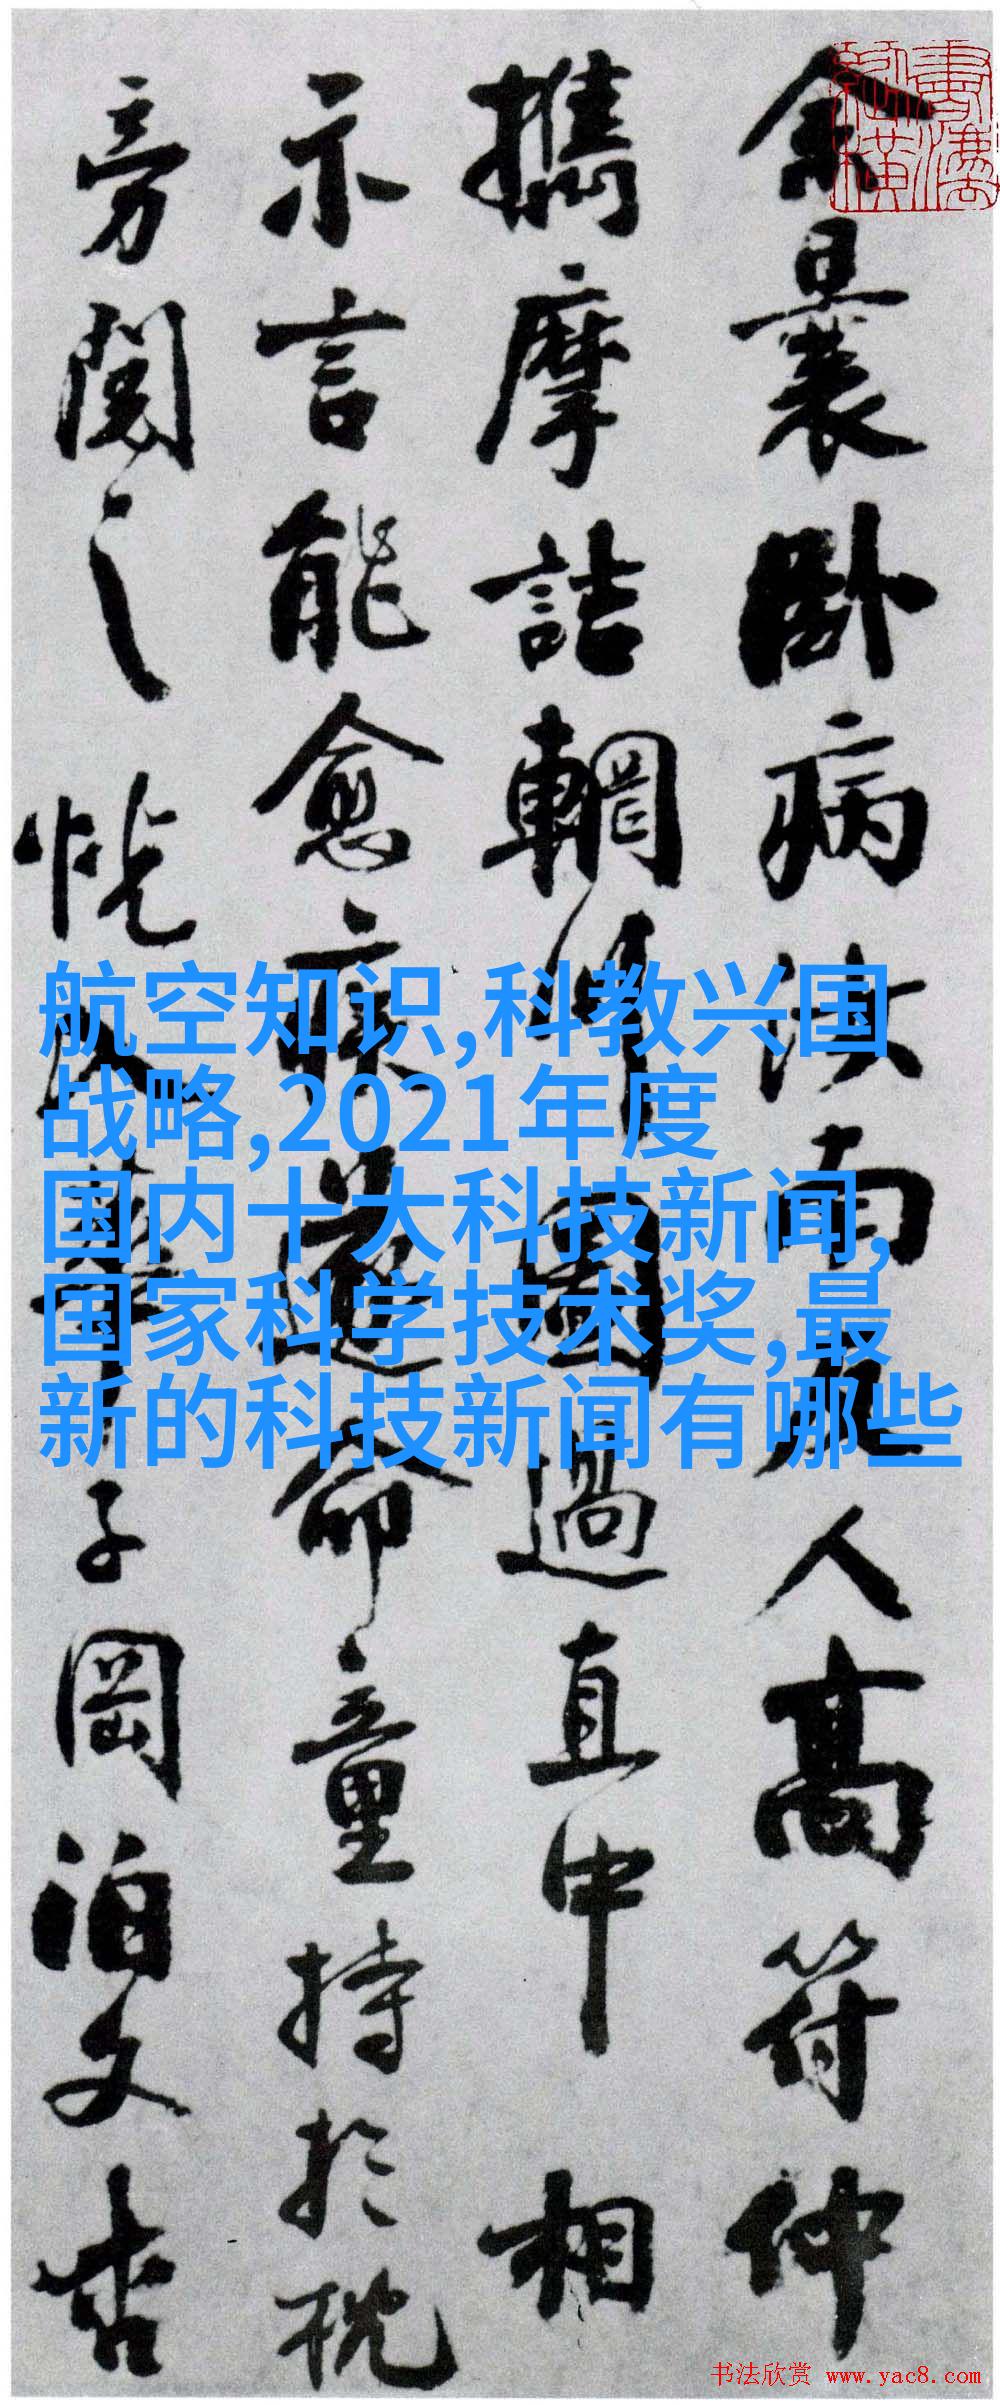 余曩卧病汝南友人高符仲
攜摩詰輞川圖過直中相
示言能愈疾遂命童持於枕
旁閱之恍入華子岡泊文杏
航空知识,科教兴国
战略,2021年度
国内十大科技新闻,
国家科学技术奖,最
新的科技新闻有哪些
书法欣赏 www.yac8.com